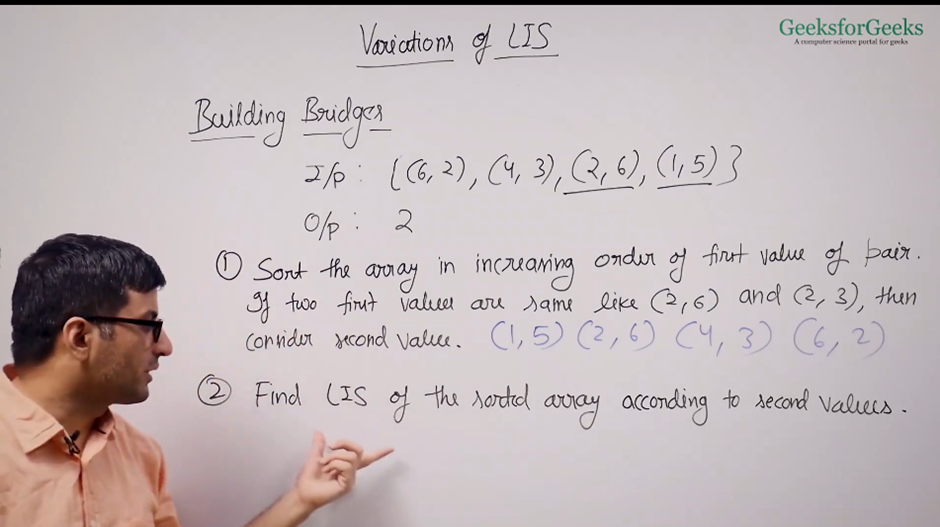 GeeksforGeeks
A computer science portal for geeks
Variations of LIS
Building Bridges
I/p : {(6, 2), (4, 3), (2, 6), (1, 5)}
O/p : 2
① Sort the array in increasing order of first value of pair.
If two first values are same like (2, 6) and (2, 3), then
consider second value. (1, 5) (2, 6) (4, 3) (6, 2)
② Find LIS of the sorted array according to second values.